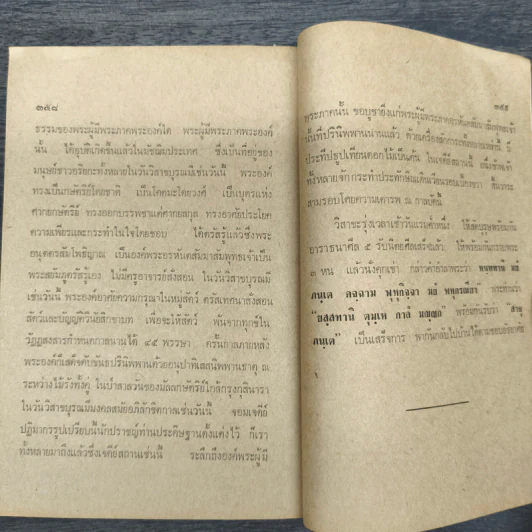 ๓๕๘
ธรรมของพระผู้มีพระภาคพระองค์ใด พระผู้มีพระภาคพระองค์
นั้น ได้อุบัติเกิดขึ้นแล้วในมัชฌิมประเทศ ซึ่งเป็นที่อยู่ของ
มนุษย์ชาวอริยกะทั้งหลายในวันวิสาขบูรณมีเช่นวันนี้ พระองค์
ทรงเป็นกษัตริย์โดยชาติ เป็นโคตมะโดยวงศ์ เป็นบุตรแห่ง
ศากยกษัตริย์ ทรงออกบรรพชาแต่ศากยสกุล ทรงอาศัยประโยค
ความเพียรและกระทำในใจโดยชอบ ได้ตรัสรู้แล้วซึ่งพระ
อนุตตรสัมโพธิญาณ เป็นองค์พระอรหันตสัมมาสัมพุทธเจ้าเป็น
พระสยัมภูตรัสรู้เอง ไม่มีครูอาจารย์สั่งสอน ในวันวิสาขบูรณมี
เช่นวันนี้ พระองค์อาศัยความกรุณาในหมู่สัตว์ ตรัสเทศนาสั่งสอน
สัตว์และบัญญัติวินัยสิกขาบท เพื่อจะให้สัตว์ พ้นจากทุกข์ใน
วัฏฏสงสารกำหนดกาลนานได้ ๔๕ พรรษา ครั้นกาลภายหลัง
พระองค์ก็เสด็จดับขันธปรินิพพานด้วยอนุปาทิเสสนิพพานธาตุ ณ
ระหว่างไม้รังทั้งคู่ ในป่าสาลวันของมัลลกษัตริย์ใกล้กรุงกุสินารา
ในวันวิสาขบูรณมีมงคลสมัยอภิลักขิตกาลเช่นวันนี้ จอมเจดีย์
ปฏิมากรรูปเปรียบนี้นักปราชญ์ท่านประดิษฐานตั้งแต่งไว้ ก็เรา
ทั้งหลายมาถึงแล้วซึ่งเจดีย์สถานเช่นนี้ ระลึกถึงองค์พระผู้มี
๓๕๙
พระภาคนั้น ขอบูชายิ่งแก่พระผู้มีพระภาคอรหันตสัมมาสัมพุทธเจ้า
นั้นที่ปรินิพพานนานแล้ว ด้วยเครื่องสักการะทั้งหลายเหล่านี้ มี
ประทีปธูปเทียนดอกไม้เป็นต้น ในเจดีย์สถานนี้ ซึ่งข้าพเจ้า
ทั้งหลายจักกระทำประทักษิณเดินเวียนรอบเบื้องขวา
สามรอบโดยความเคารพ ณ กาลบัดนี้
วิสาขะรุ่งเวลาเช้าวันแรมค่ำหนึ่ง ให้
อาราธนาศีล ๕ รับนิตยศีลเสร็จแล้ว ให้พร้อมกันกราบพระ
๓ หน แล้วนั่งคุกเข่า กล่าวคำลาพระว่า
ภนฺเต
"ยสฺสทานิ ตุมฺเห กาลํ มญฺญถ" พระสงฆ์รับว่า "สาธุ
ภนฺเต" เป็นเสร็จการ